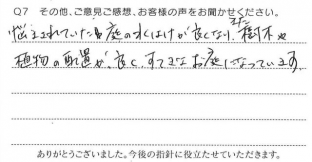 Q7 その他、ご意見ご感想、お客様の声をお聞かせください。
悩まされていた庭の水はけが良くなり、また樹木や
植物の配置が良く、すてきなお庭になっています。
ありがとうございました。今後の指針に役立たせていただきます。